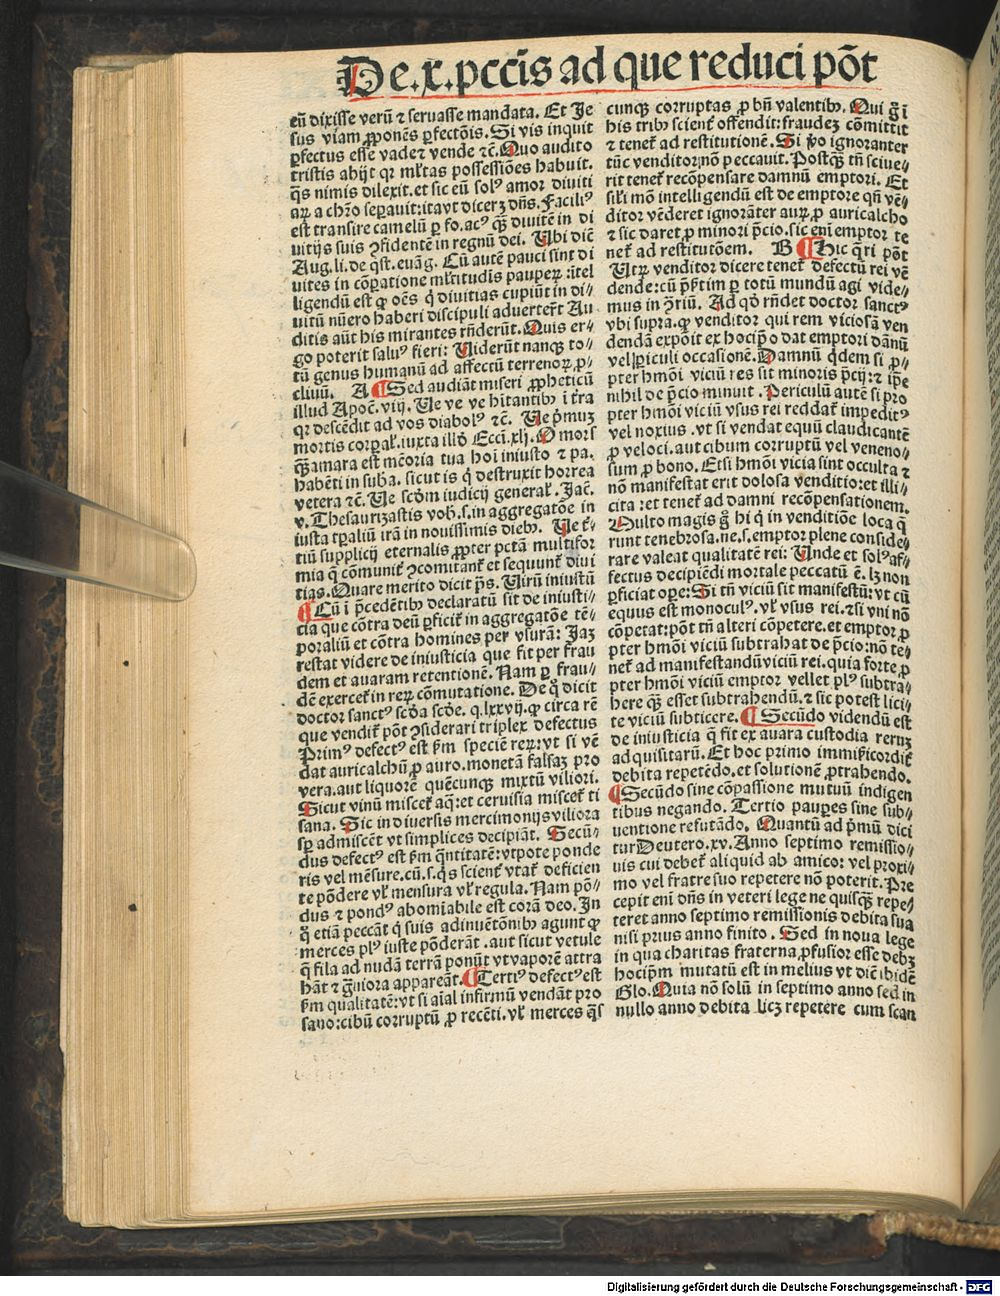 De.x.pccis ad que reduci pōt
eū dixisse verū ⁊ seruasse mandata. Et Je
sus viam ꝓponēs ꝑfectōis. Si vis inquit
ꝑfectus esse vade⁊ vende ⁊c̄. Quo audito
tristis abijt qꝛ ml'tas possessiōes habuit.
qs̄ nimis dilexit. et sic eū solꝰ amor diuiti
aꝝ a chr̄o sepauit: itavt diceꝛꝫ dn̄s. Facili⁹
est transire camelū ꝑ fo. ac⁹ qꝫ̄ diuitē in di
uitijs suis ꝯfidentē in regnū dei. Vbi diē
Aug. li. de qst̄. euāg. Cū autē pauci sint di
uites in cōꝑatione ml'titudis pauperꝝ: itel
ligendū est ꝙ oēs q̇ diuitias cupiūt in di⸗
uitū nūero haberi discipuli aduerter̄t Au
ditis aūt his mirantes rn̄derūt. Quis er⸗
go poterit salu⁹ fieri: Viderūt nanqꝫ to⸗
tū genus humanū ad affectū terrenoꝝ ꝓ⸗
cliuū. A ¶ Sed audiāt miseri ꝓpheticū
illud Apoc̄. viij. Ve ve ve hitantibꝰ i tr̄a
qꝛ descēdit ad vos diabol⁹ ⁊c̄. Ve p̄muꝫ
mortis corꝑal'. iuxta illḋ Ecci. xlj. O mors
qꝫ̄ amara est mēoria tua hoī iniusto ⁊ pa.
habēti in sub̄a. sicut is q̇ destruxit horrea
vetera ⁊c̄. Ve scd̄m iudicij general'. Jac̄.
v. Thesaurizastis vob̄. s. in aggregatōe in
iusta tꝑaliū irā in nouissimis diebꝰ. Ve t̄⸗
tiū supplicij eternalis ꝓpter pctā multifor
mia q̄ cōmunit̄ ꝯcomitant̄ et sequunt̄ diui
tias. Quare merito dicit ps̄. Virū iniustū
¶ Cū ī p̄cedētibꝰ declaratū sit de iniusti⸗
cia que cōtra deū ꝑficit̄ in aggregatōe tē⸗
poraliū et cōtra homines per vsurā: Jaꝫ
restat videre de iniusticia que fit per frau
dem et auaram retentionē. Nam ꝑ frau⸗
dē exercet̄ in reꝝ cōmutatione. De q̊ dicit
doctor sanct⁹ scd̄a scd̄e. q. lxxvij. ꝙ circa rē
que vendit̄ pōt ꝯsiderari triplex defectus
Prim⁹ defect⁹ est p̄m speciē reꝝ: vt si vē
dat auricalchū ꝓ auro. monetā falsaꝫ pro
vera. aut liquorē quēcunqꝫ mixtū viliori.
Sicut vinū miscet̄ aq̄: et ceruisia miscet̄ ti
sana. Sic in diuersis mercimonijs viliora
sꝑ admiscēt vt simplices decipiāt. Secū⸗
dus defect⁹ est p̄m q̄ntitatē: vtpote ponde
ris vel mēsure. cū. s. qs̄ scient̄ vtat̄ deficien
te pōdere vl' mensura vl' regula. Nam pō⸗
dus ⁊ pond⁹ abomiabile est corā deo. In
q̊ etiā peccāt q̇ suis adinuētōnibꝰ agunt ꝙ
merces pl⁹ iuste pōderāt. aut sicut vetule
q̄ fila ad nudā terrā ponūt vt vaporē attra
hāt ⁊ ḡuiora appareāt. ¶ Terti⁹ defect⁹ est
p̄m qualitatē: vt si aīal infirmū vendāt pro
sano: cibū corruptū ꝓ recēti. vl' merces qs̄
cunqꝫ corruptas ꝓ bn̄ valentibꝰ. Qui g̊ ī
his tribꝰ scient̄ offendit: fraudeꝫ cōmittit
⁊ tenet̄ ad restitutionē. Si v̊o ignoranter
tūc venditor nō peccauit. Postqꝫ̄ tn̄ sciue⸗
rit tenet̄ recōpensare damnū emptori. Et
sil'i mō intelligendū est de emptore qn̄ vē⸗
ditor vēderet ignorāter auꝝ ꝓ auricalcho
⁊ sic daret ꝓ minori p̄cio. sic eni emptor te
net̄ ad restitutōem. B ¶ Hic q̄ri pōt
Vtrꝫ venditor dicere tenet̄ defectū rei vē
dende: cū p̄ntim ꝑ totū mundū agi vide⸗
mus in ꝯriū. Ad qḋ rn̄det doctor sanct⁹
vbi supra. ꝙ venditor qui rem viciosā ven
dendā expōit ex hocip̄o dat emptori dānū
vel ꝑiculi occasionē. Damnū q̇dem si ꝓ⸗
pter hmōi viciū res sit minoris p̄cij: ⁊ ip̄e
nihil de p̄cio minuit. Periculū autē si pro
pter hmōi viciū vsus rei reddat̄ impedit⁹
vel noxius. vt si vendat equū claudicantē
ꝓ veloci. aut cibum corruptū vel veneno⸗
sum ꝓ bono. Etsi hmōi vicia sint occulta ⁊
nō manifestat erit dolosa venditio: et illi⸗
cita: et tenet̄ ad damni recōpensationem.
Multo magis g̊ hi q̇ in venditiōe loca q̄⸗
runt tenebrosa. ne. s. emptor plene conside⸗
rare valeat qualitatē rei: Vnde et sol⁹ af⸗
fectus decipiēdi mortale peccatū ē. lꝫ non
ꝑficiat oꝑe: Si tn̄ viciū sit manifestū: vt cū
equus est monocul⁹. vl' vsus rei. ⁊si vni nō
cōpetat: pōt tn̄ alteri cōpetere. et emptor ꝓ
pter hmōi viciū subtrahat de p̄cio: nō te⸗
net̄ ad manifestandū viciū rei. quia forte ꝓ
pter hmōi viciū emptor vellet pl⁹ subtra⸗
here qꝫ̄ esset subtrahendū. ⁊ sic potest lici⸗
te viciū subticere. ¶ Secūdo videndū est
de iniusticia q̄ fit ex auara custodia reruꝫ
adquisitarū. Et hoc primo immiẜicordit̄
debita repetēdo. et solutionē ꝓtrahendo.
¶ Secūdo sine cōpassione mutuū indigen
tibus negando. Tertio pauꝑes sine sub⸗
uentione refutādo. Quantū ad p̄mū dici
tur Deutero. xv. Anno septimo remissio⸗
nis cui debet̄ aliquid ab amico: vel proxi⸗
mo vel fratre suo repetere nō poterit. Pre
cepit eni dn̄s in veteri lege ne quisqꝫ̄ repe⸗
teret anno septimo remissionis debita sua
nisi prius anno finito. Sed in noua lege
in qua charitas fraterna ꝓfusior esse debꝫ
hocip̄m mutatū est in melius vt diē ibidē
Glo. Quia nō solū in septimo anno sed in
nullo anno debita licꝫ repetere cum scan
Digitalisierung gefördert durch die Deutsche Forschungsgemeinschaft - DFG